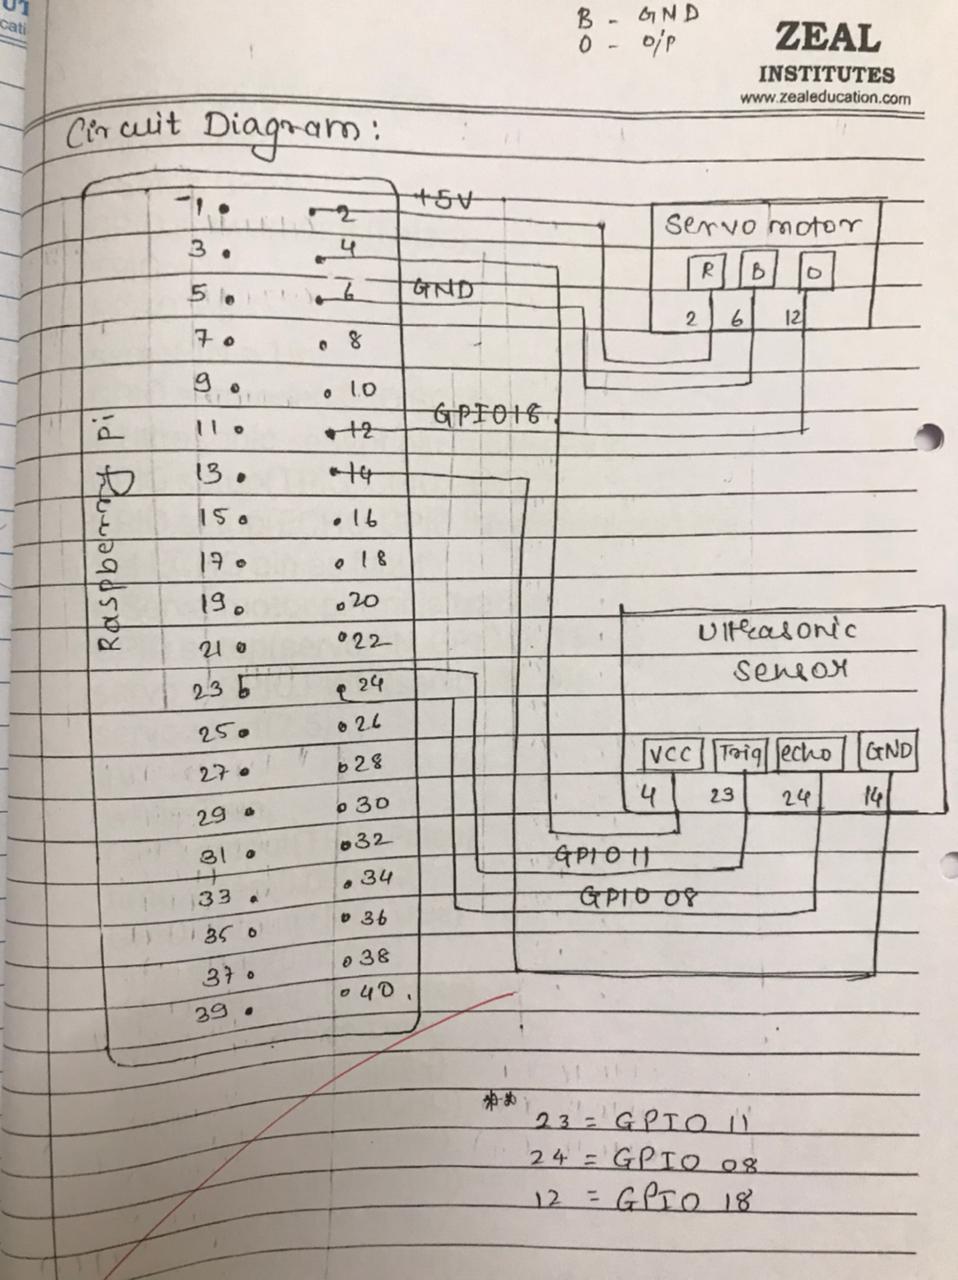 B - GND
O - O/P
ZEAL
INSTITUTES
www.zealeducation.com
Circuit Diagram:
1 2 +5V
3 4
5 6 GND
7 8
9 10
11 12 GPIO18
13 14
15 16
17 18
19 20
21 22
23 24
25 26
27 28
29 30
31 32
33 34
35 36
37 38
39 40
Raspberry Pi
Servo motor
R B O
2 6 12
Ultrasonic
Sensor
VCC Trig echo GND
4 23 24 14
GPIO 11
GPIO 08
** 23 = GPIO 11
24 = GPIO 08
12 = GPIO 18